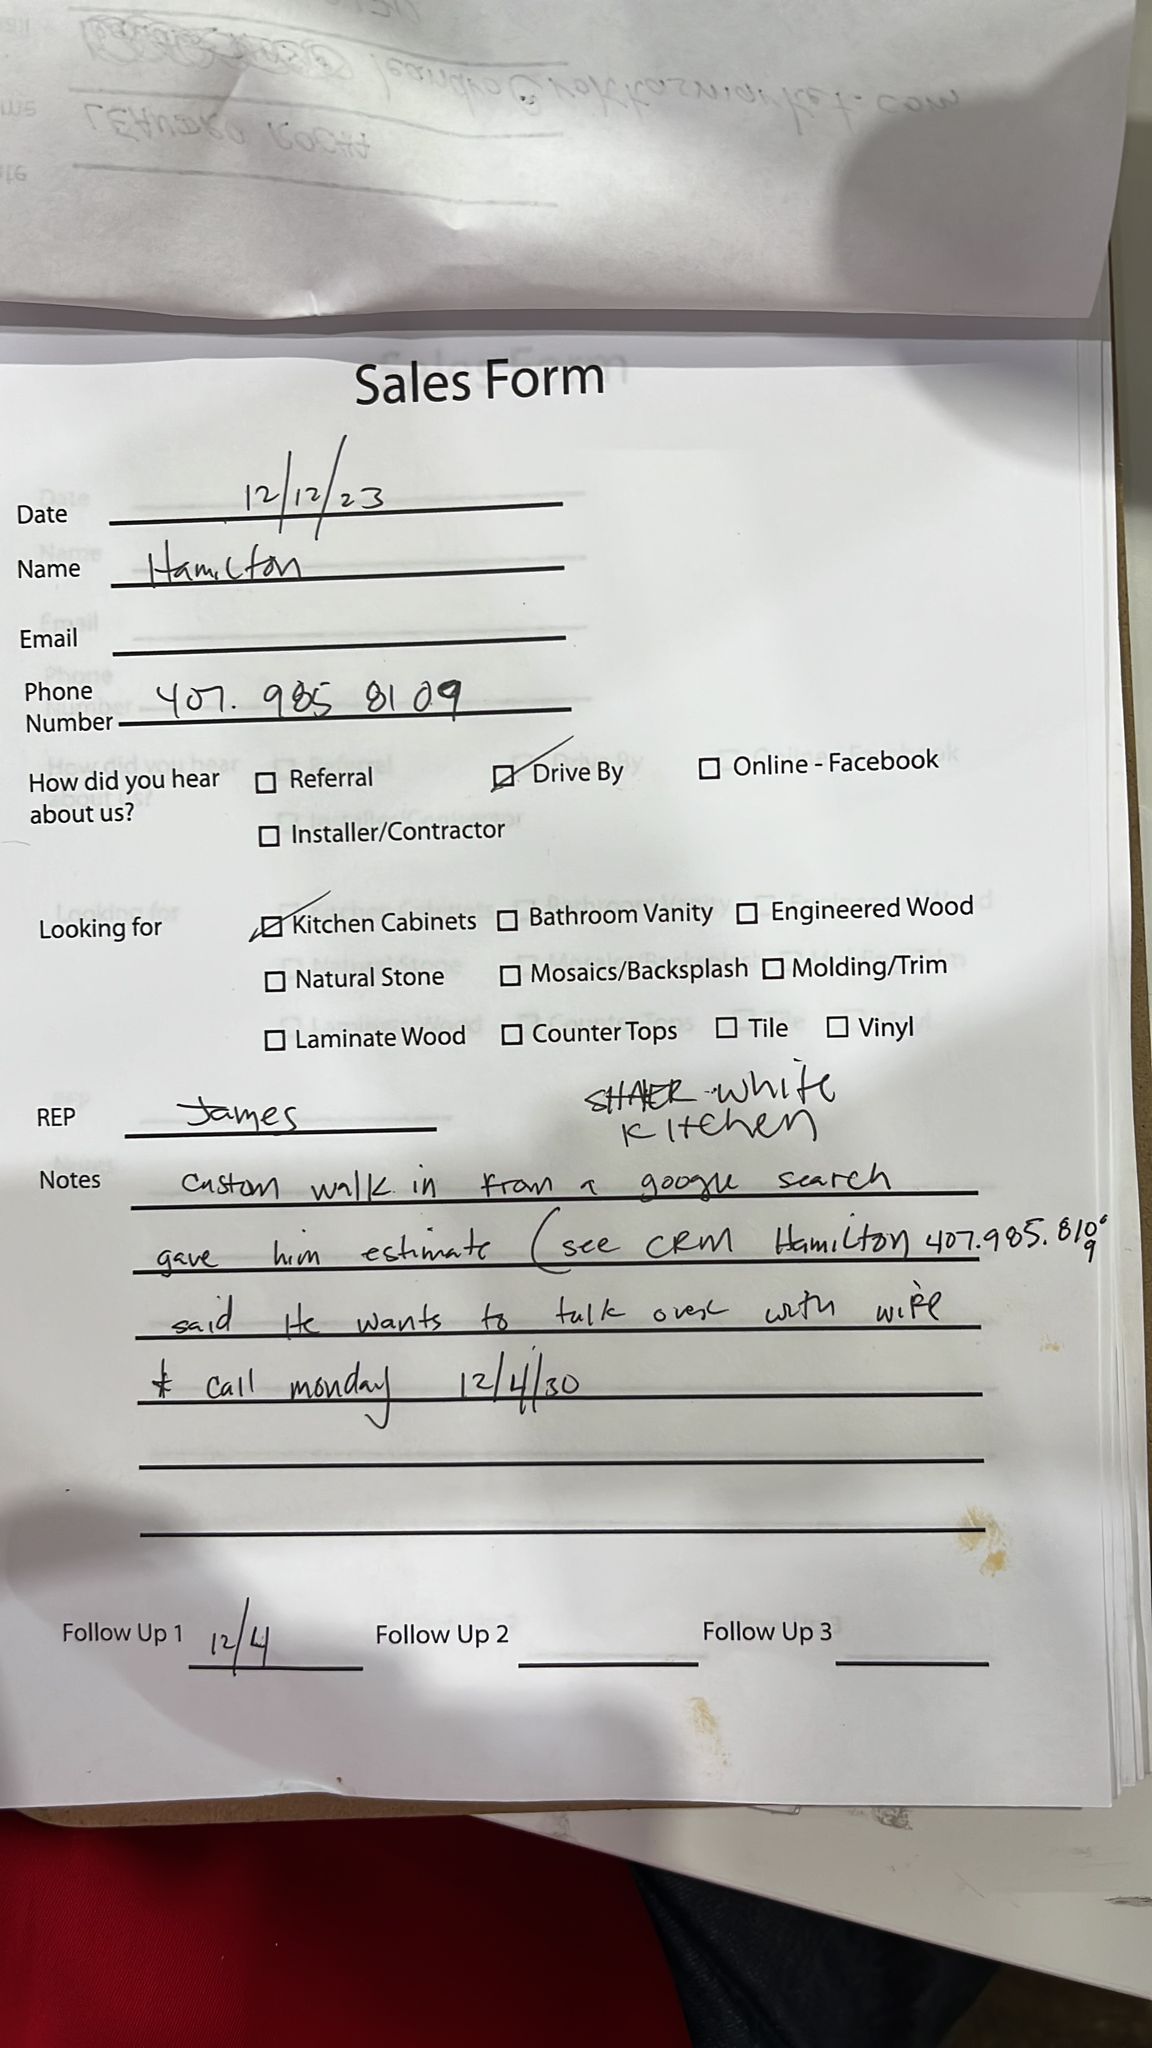 leandro@rokkasmarket.com
LEANDRO ROCHA
Sales Form
Date 12/12/23
Name Hamilton
Email
Phone Number 407. 985 8109
How did you hear about us? Referral Drive By Online - Facebook
Installer/Contractor
Looking for Kitchen Cabinets Bathroom Vanity Engineered Wood
Natural Stone Mosaics/Backsplash Molding/Trim
Laminate Wood Counter Tops Tile Vinyl
REP James
white
Kitchen
Notes custom walk in from a google search
gave him estimate (see CRM Hamilton 407.985.8109
said He wants to talk over with wife
* call monday 12/4/30
Follow Up 1 12/4 Follow Up 2 Follow Up 3